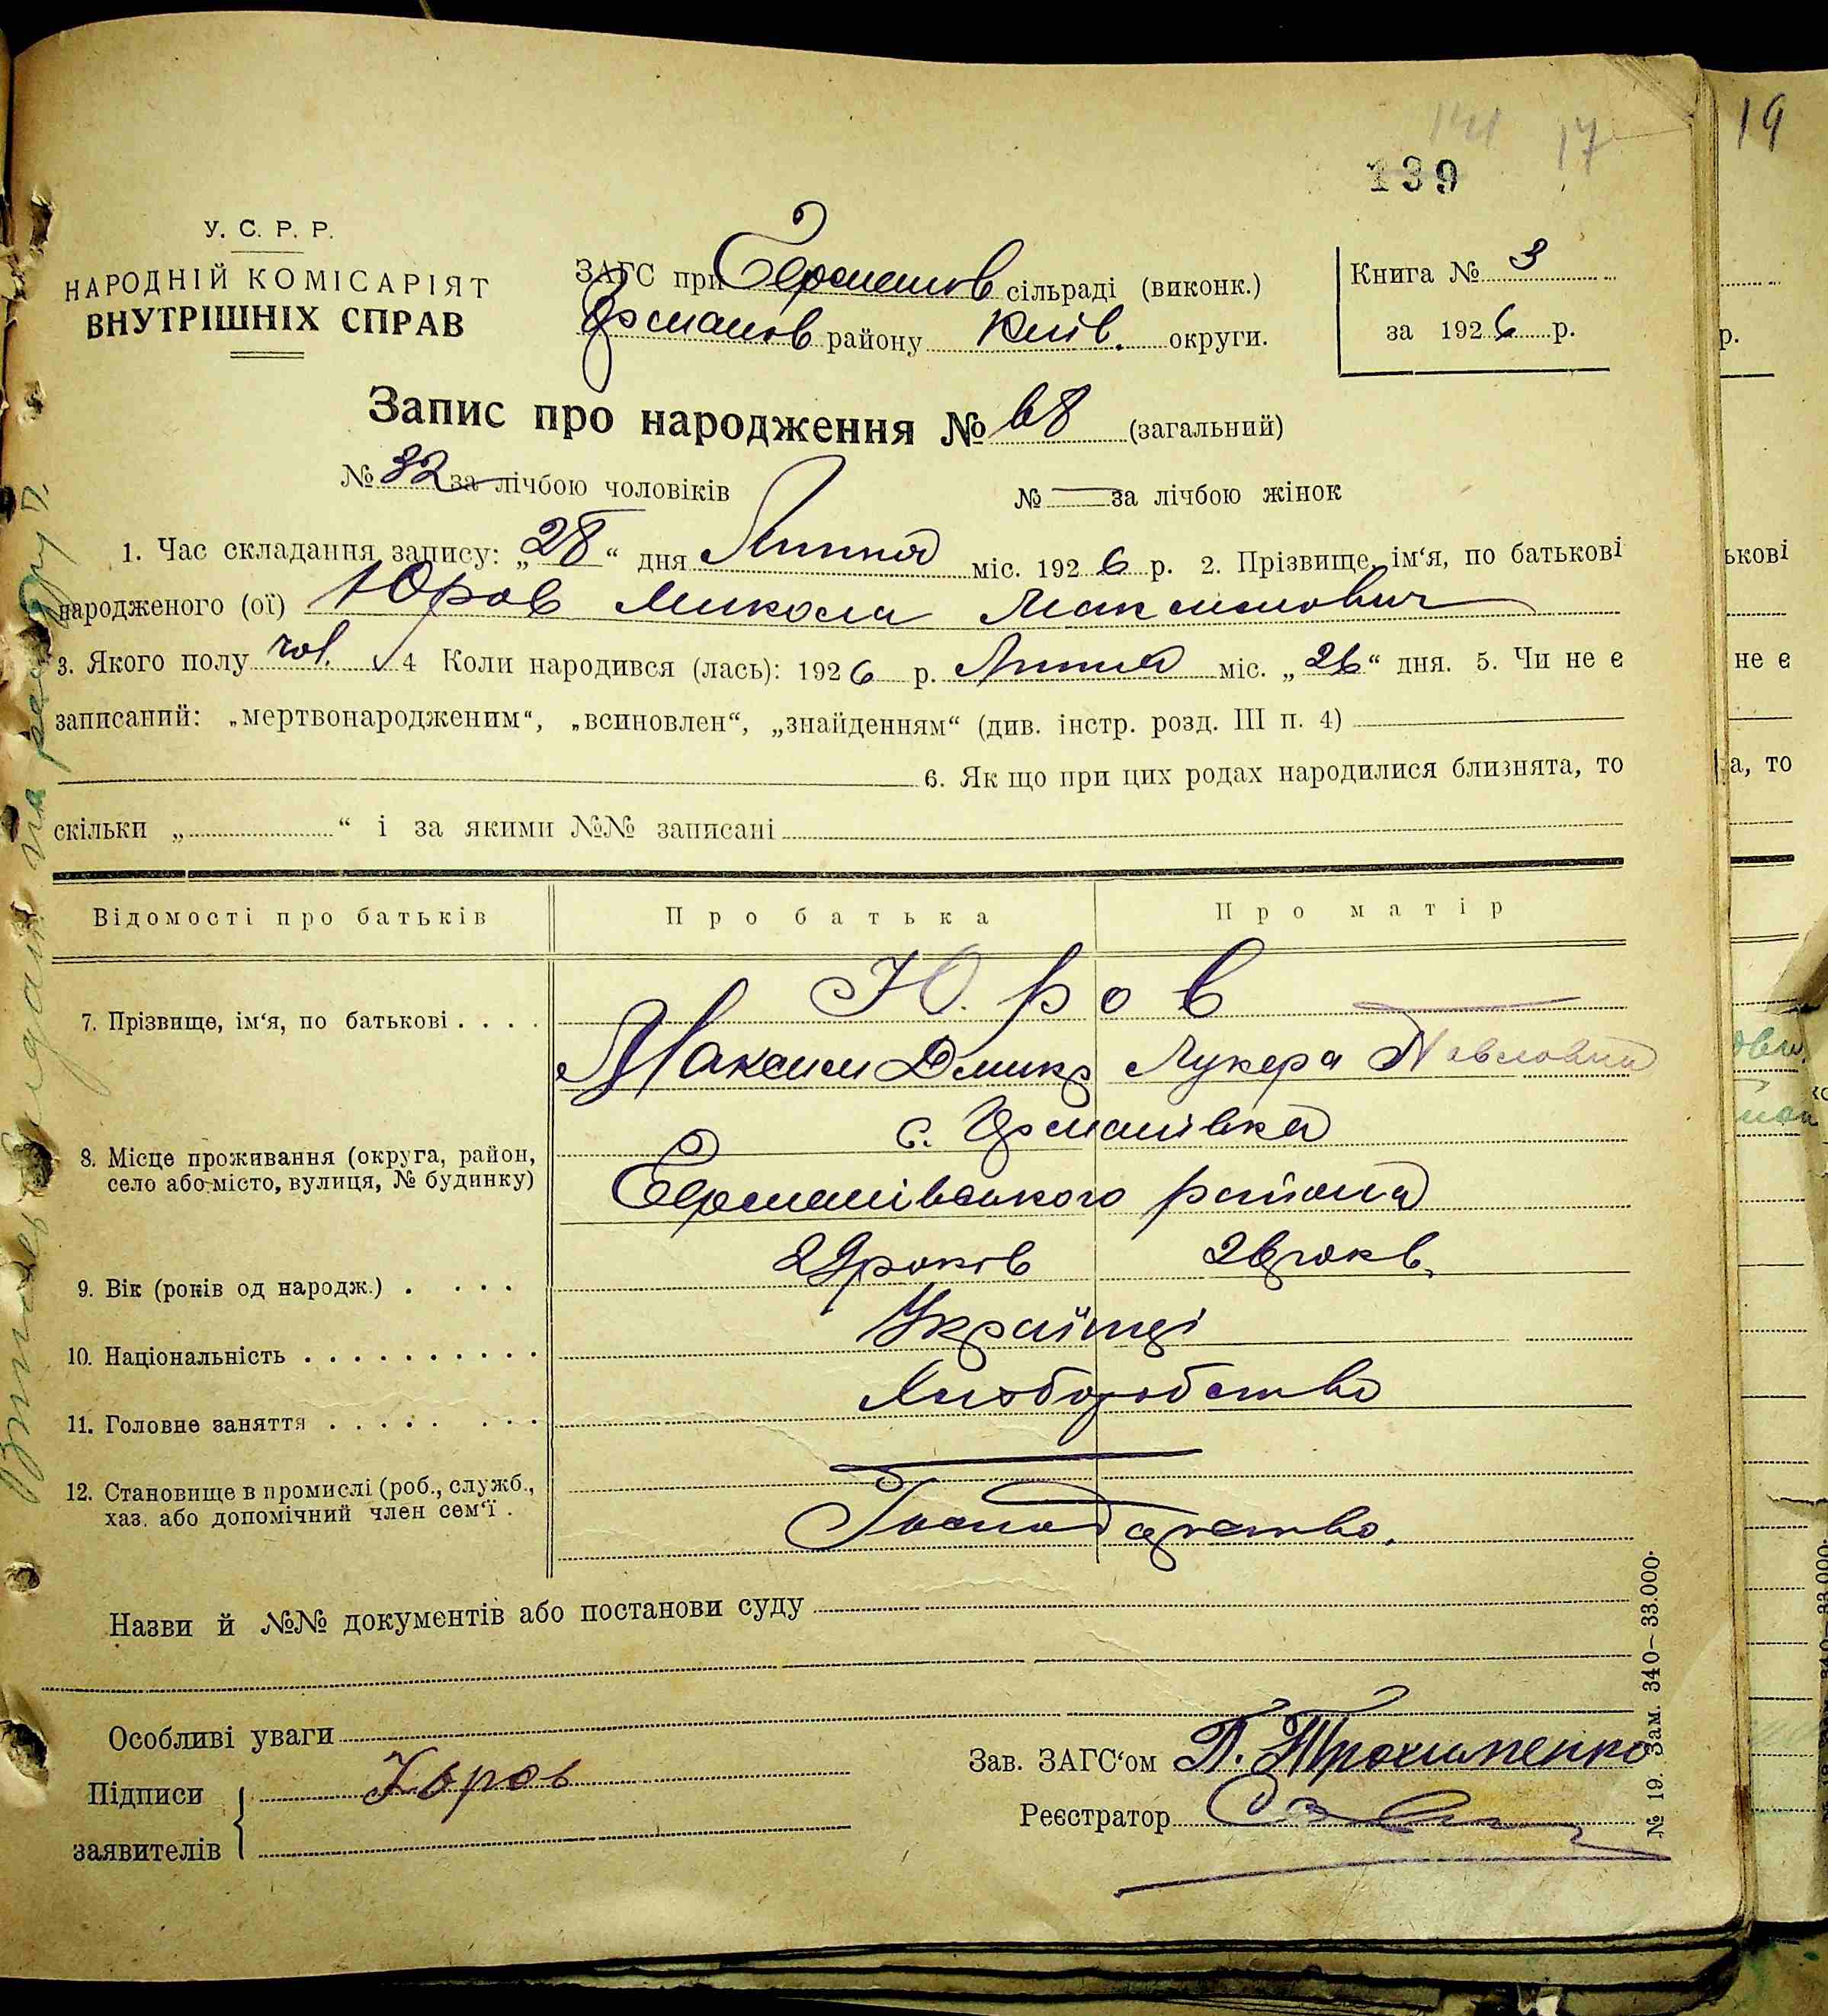 141 17
139
19
У. С. Р. Р.
НАРОДНІЙ КОМІСАРІЯТ
ВНУТРІШНІХ СПРАВ
ЗАГС при Германов сільраді (виконк.)
Германов району Київ. округи.
Книга № 3
за 1926 р.
Запис про народження № 68 (загальний)
№ 32 за лічбою чоловіків № — за лічбою жінок
1. Час складання запису: „28“ дня Липня міс. 1926 р. 2. Прізвище, ім‘я, по батькові
народженого (ої) Юров Микола Максимович
3. Якого полу чол. 4 Коли народився (лась): 1926 р. Липня міс. „26“ дня. 5. Чи не є
записаний: „мертвонародженим“, „всиновлен“, „знайденням“ (див. інстр. розд. III п. 4)
6. Як що при цих родах народилися близнята, то
скільки „ “ і за якими №№ записані
Відомості про батьків Про батька Про матір
7. Прізвище, ім‘я, по батькові . . . . Юров
Максим Дмитр Лукера Павловна
8. Місце проживання (округа, район, с. Германівка
село або місто, вулиця, № будинку) Германівського района
9. Вік (років од народж.) . . . . 29 років 26 років
10. Національність . . . . . . . . . . Українці
11. Головне заняття . . . . . . . . Хліборобство
12. Становище в промислі (роб., служб.,
хаз. або допомічний член сем‘ї . Господарство.
Назви й №№ документів або постанови суду
Особливі уваги
Зав. ЗАГС‘ом П. Трохименко
Підписи Юров
заявителів
Реєстратор
№ 19. Зам. 340–33.000.